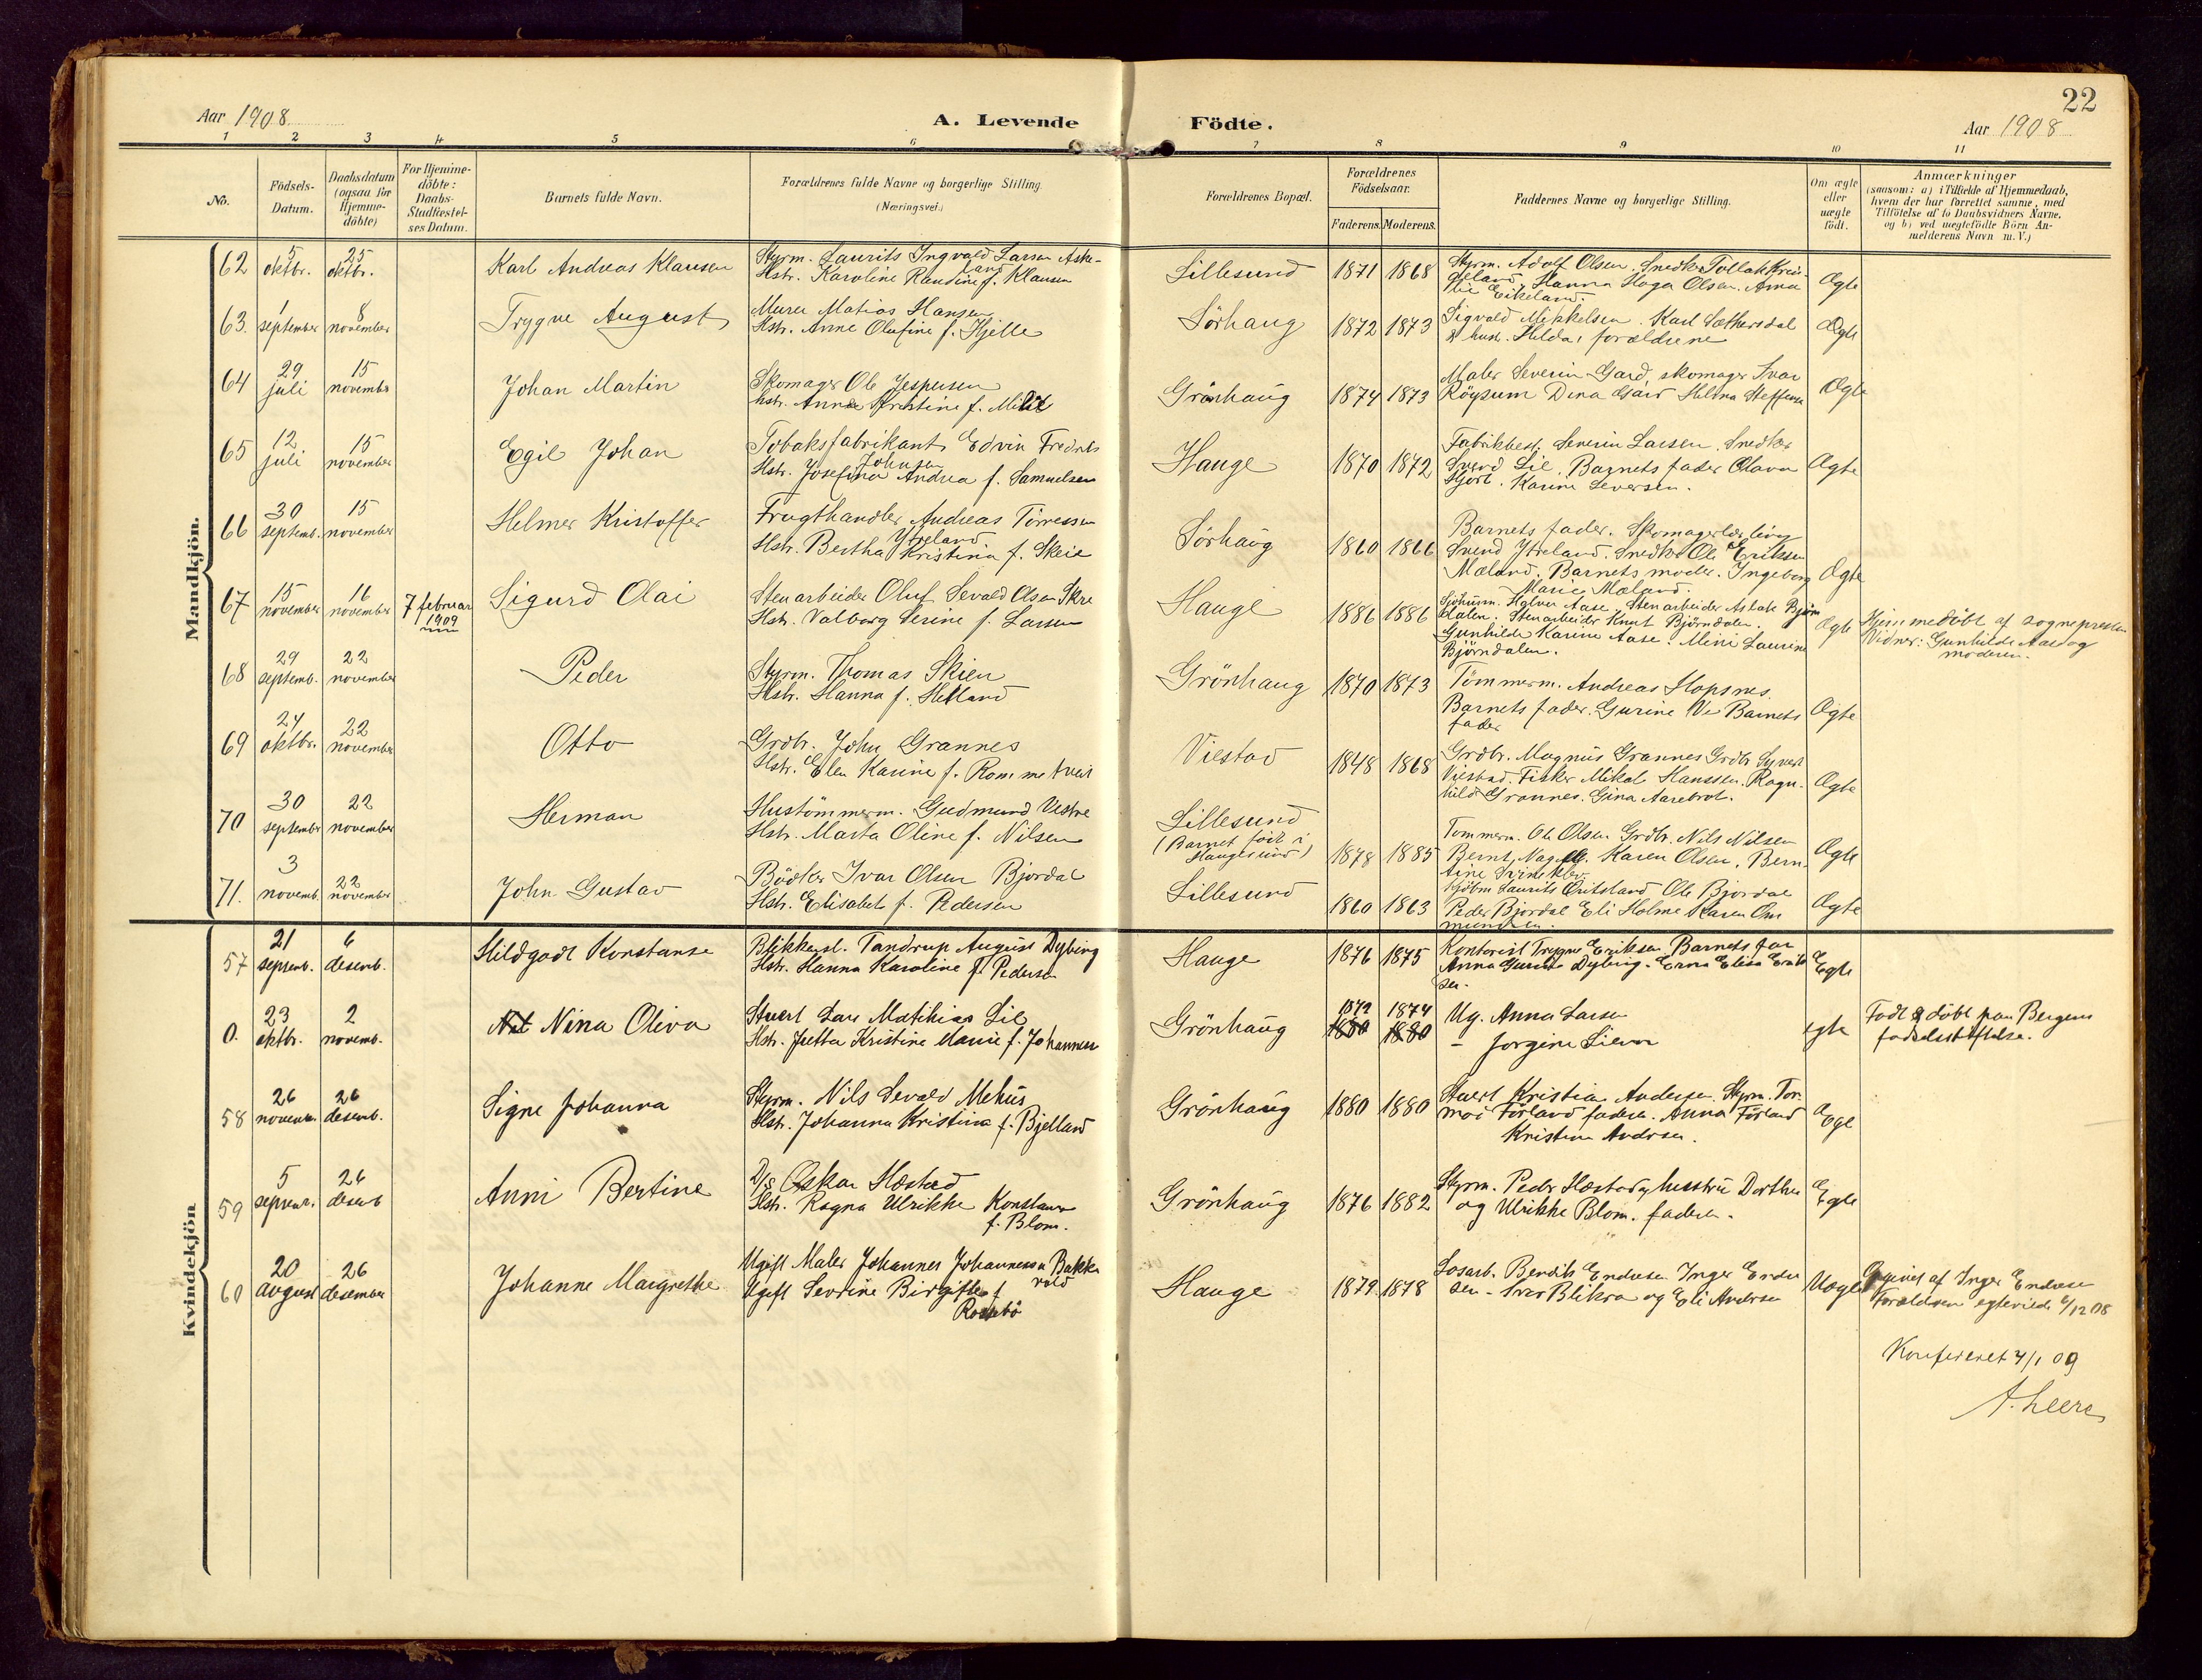 22
Aar 1908
A. Levende Födte.
Aar 1908
1 2 3 4 5 6 7 8 9 10 11
No.
Födsels-
Datum.
Daabsdatum
(ogsaa for
Hjemme-
döbte)
For Hjemme-
döbte:
Daabs-
Stadfæstel-
ses Datum.
Barnets fulde Navn.
Forældrenes fulde Navne og borgerlige Stilling
(Næringsvei.)
Forældrenes Bopæl.
Forældrenes
Födselsaar.
Faderens. Moderens.
Faddernes Navne og borgerlige Stilling.
Om ægte
eller
uægte
födt.
Anmærkninger
(saasom: a) i Tilfælde af Hjemmedaab,
hvem der har forrettet samme, med
Tilföielse af to Daabsvidners Navne,
og b) ved uægtefödte Börn An-
melderens Navn m. V.)
Mandkjön.
62
5
oktbr.
25
oktbr.
Karl Andreas Klausen
Styrm. Laurits Ingvald Larsen Aske-
land
Hstr. Karoline Randine f. Klausen
Lillesund
1871 1868
Styrm. Adolf Olsen. Snedker Tollak
Hanna Haga Olsen. Anna
Eikeland.
Ægte
63.
1
september
8
november
Trygve August
Murer Matias Hansen
Hstr. Anne Olufine f. Hjelle
Sörhaug
1872 1873
Sigvald Mikkelsen. Karl Sæthersdal
& hustr. Hilda, forældrene
Ægte
64
29
juli
15
novembr
Johan Martin
Skomager Ole Jespersen
hstr. Anna Kristine f.
Grönhaug
1874 1873
Maler Severin Gard, skomager Ivar
Röysum Dina Gard Helena Steffensen
Ægte
65
12
juli
15
november
Egil Johan
Tobaksfabrikant Edvin Fredrik
Johnsen
Hstr. Josefina Andrea f. Samuelsen
Hauge
1870 1872
Fabrikbest. Severin Larsen. Snedker
Svend Lie. Barnets fader Olava
Hjort. Karine Seversen.
Ægte
66
30
septemb.
15
november
Helmer Kristoffer
Frugthandler Andreas Törressen
Ytreland
Hstr. Bertha Kristina f. Skeie
Sörhaug
1860 1866
Barnets fader. Skomagerlærling
Svend Ytreland. Snedker Ole Eriksen
Mæland. Barnets moder. Ingeborg
Marie Mæland.
Ægte
67
15
november
16
november
7 februar
1909
Sigurd Olai
Stenarbeider Oluf Sevald Olsen Skre
Hstr. Valborg Serine f. Larsen
Hauge
1886 1886
Sjöhmm. Halvor Aase. Stenarbeider Aslak Björn
dalen. Stenarbeider Knut Björndalen.
Gunhilde Karine Aase. Mini Laurine
Björndalen.
Ægte
Hjemmedöbt af sognepresten
Vidner: Gunhilde Aase og
moderen.
68
29
septemb.
22
november
Peder
Styrm. Thomas Skien
Hstr. Hanna f. Hetland
Grönhaug
1870 1873
Tömmerm. Andreas Hopsnes.
Barnets fader. Gurine Ve Barnets
fader
Ægte
69
24
oktbr.
22
november
Otto
Grdbr. John Grannes
Hstr. Elen Karine f. Rommetveit
Viestad
1848 1868
Grdbr. Magnus Grannes Grdbr Syvert
Viestad. Fisker Mikal Hanssen. Ragn-
hild Grannes. Gina Aarebrot.
Ægte
70
30
september
22
november
Herman
Hustömmerm. Gudmund Vestre
Hstr. Marta Oline f. Nilsen
Lillesund
(Barnet födt i
Haugesund)
1878 1885
Tömmerm. Ole Olsen. Grdbr. Nils Nilsen
Bernt Karen Olsen. Bern-
tine
Ægte
71.
3
novemb.
22
november
John Gustav
Bödker Ivar Olsen Bjordal
Hstr. Elisabet f. Pedersen
Lillesund
1860 1863
Kjöbm Laurits Öritsland Ole Bjordal
Peder Bjordal Eli Holme Karen Om
mundsen.
Ægte
Kvindekjön
57
21
septemb.
6
desemb.
Hildgodt Konstanse
Blikkensl. Tandrup August Dybing
Hstr. Hanna Karoline f. Pedersen
Hauge
1876 1875
Kontorist Trygve Eriksen Barnets far
Anna Gurine Dybing. Erna Elisa Erik
sen.
Egte
0.
23
oktbr.
2
novemb.
Nina Oliva
Stuert Lars Mathias Lie
Hstr. Jutta Kristine Marie f. Johannesen
Grönhaug
1872 1874
1880 1880
Ug. Anna Larsen
- Jorgine
egte
Födt & döbt paa Bergens
födselsstiftelse.
58
26
novem.
26
desemb.
Signe Johanna
Styrm. Nils Sevald Mehus
Hstr. Johanna Kristina f. Bjelland
Grönhaug
1880 1880
Stuert Kristian Andersen. Styrm. Tor-
mod Förland faderen. Anna Förland
Kristine Andersen.
Egte
59
5
septemr.
26
desemb
Anni Bertine
D/s Oskar Hæstad
Hstr. Ragna Ulrikke Konstanse
f. Blom.
Grönhaug
1876 1882
Styrm. Peder Hæstad og husstru Dorthea
og Ulrikke Blom. faderen.
Egte
60
20
august
26
desember
Johanne Margrethe
Ugift Maler Johannes Johannessen Bakke
vold
Ugift Sevrine Birgitte f
Rossebö
Hauge
1879. 1878
Losarb. Bendik Endresen Inger Endre
sen - Iver Blikra og Eli Andersen
Uegte
Opgivet af Inger Endresen
Forældrene egteviede 6/12 08
Konfereret 4/1 09
A. Leere